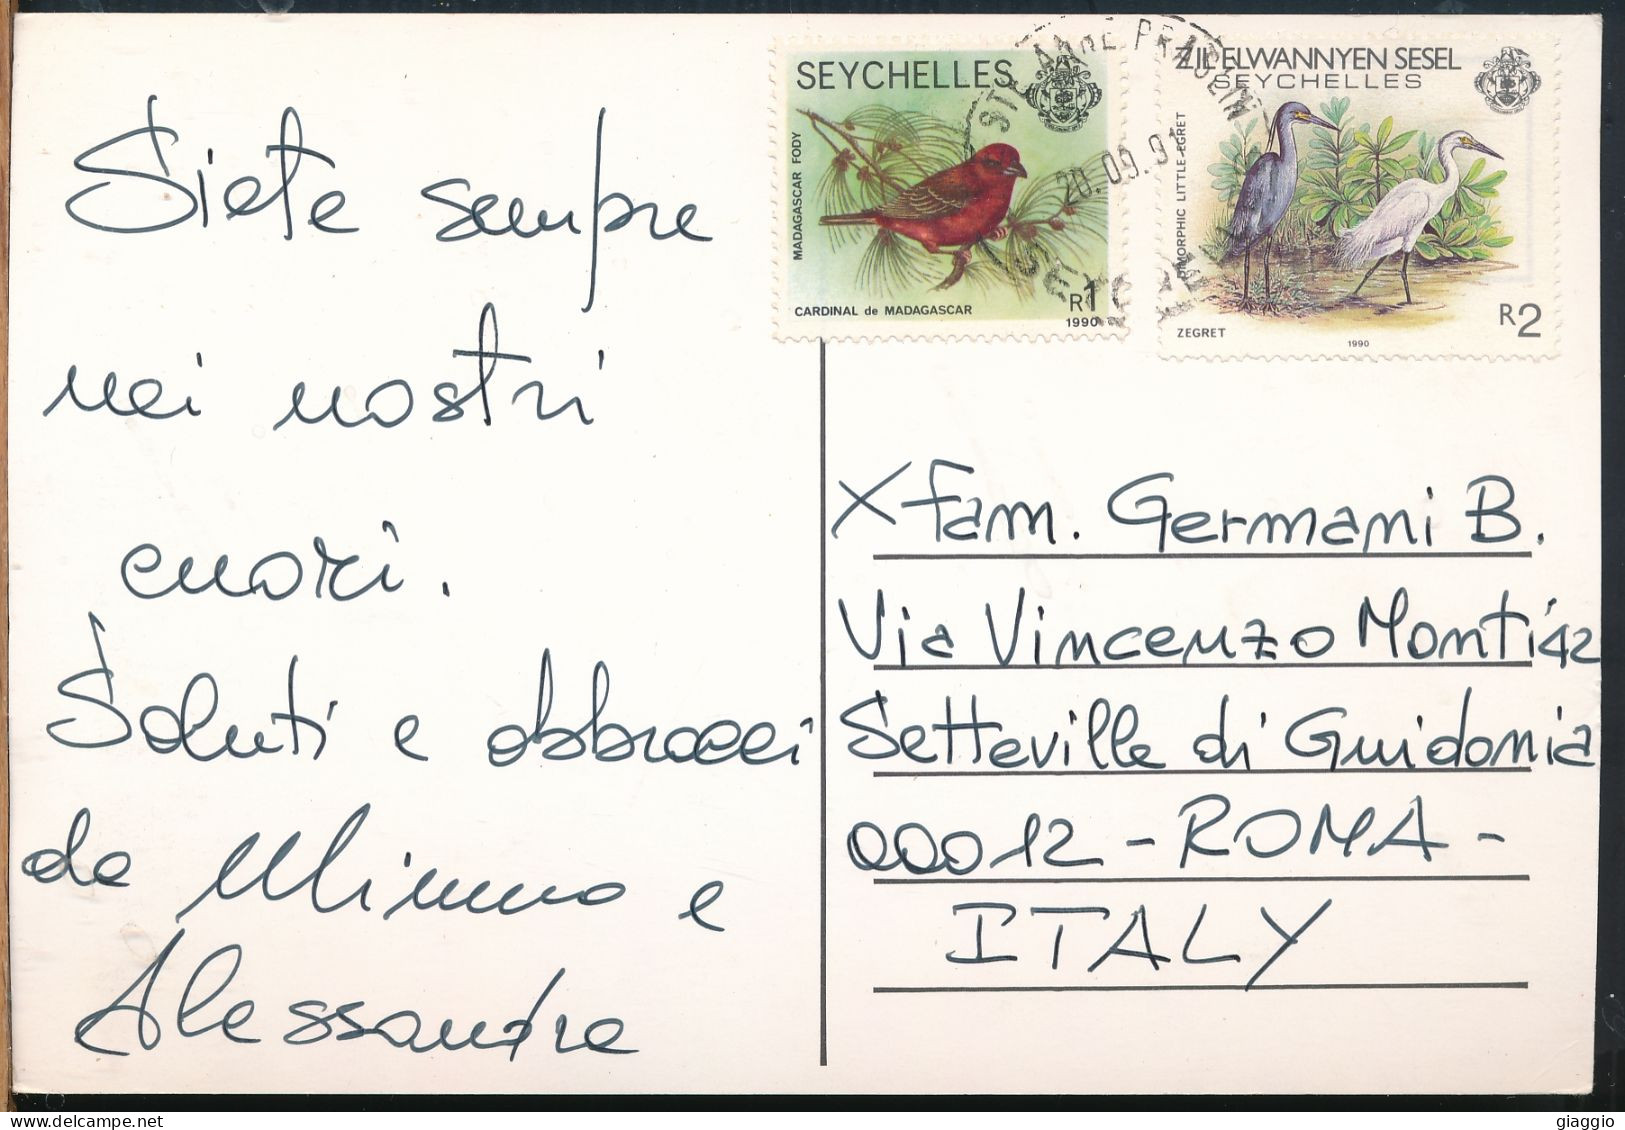 Siete sempre
nei nostri
cuori.
Saluti e abbracci
da Mimmo e
Alessandra
SEYCHELLES
MADAGASCAR FODY
CARDINAL de MADAGASCAR
R1
1990
STE ANNE PRASLIN
20.09.91
ZIL ELWANNYEN SESEL
SEYCHELLES
DIMORPHIC LITTLE-EGRET
ZEGRET
1990
R2
X Fam. Germani B.
Via Vincenzo Monti 42
Setteville di Guidonia
00012 - ROMA -
ITALY
giaggio